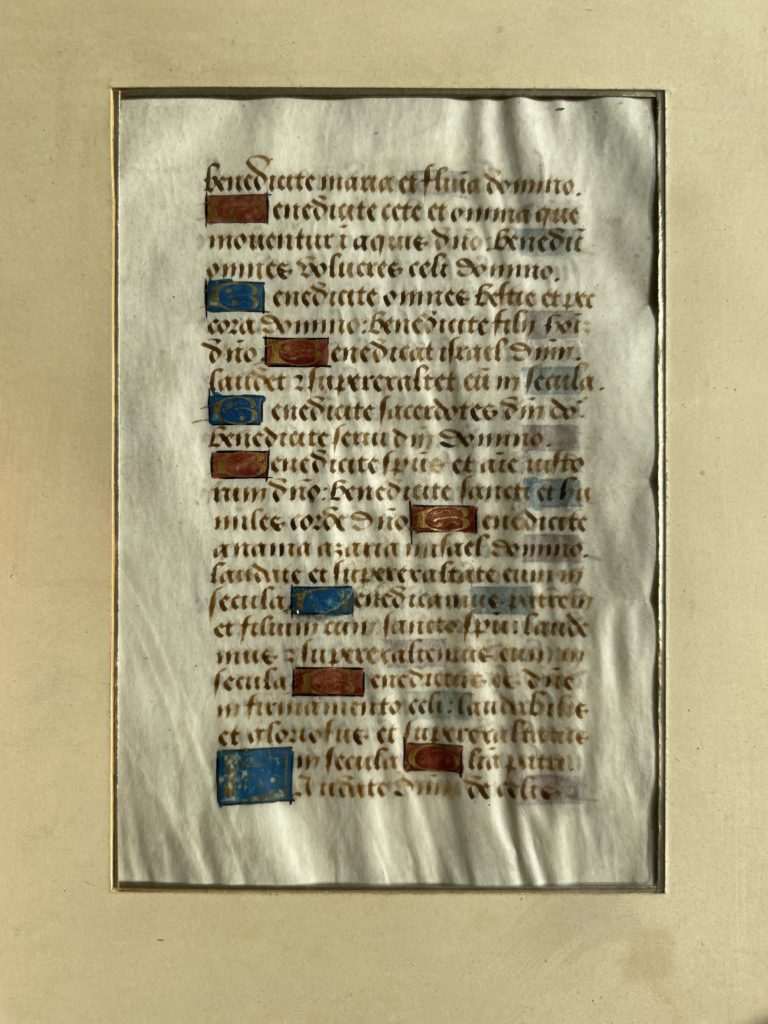 benedicite maria et flumina domino.
Benedicite cete et omnia que
moventur ī aquis dn̄o. benedicite
omnes volucres celi domino.
Benedicite omnes bestie et pec
cora domino: benedicite filii hoīm
dn̄o. Benedicat israel dn̄m.
laudet ⁊ superexaltet eū in secula.
Benedicite sacerdotes dn̄i dn̄o.
benedicite servi dn̄i domino.
Benedicite sps̄ et aīe iusto
rum dn̄o: benedicite sancti et hu
miles corde dn̄o. Benedicite
anania azaria misael domino.
laudate et superexaltate eum in
secula. Benedicamus patrem
et filium cum sancto spū: laude
mus ⁊ superexaltemus eum in
secula. Benedictus es dn̄e
in firmamento celi: laudabilis
et gloriosus et superexaltatus
in secula. Gloria patri.
Laudate dn̄m de celis